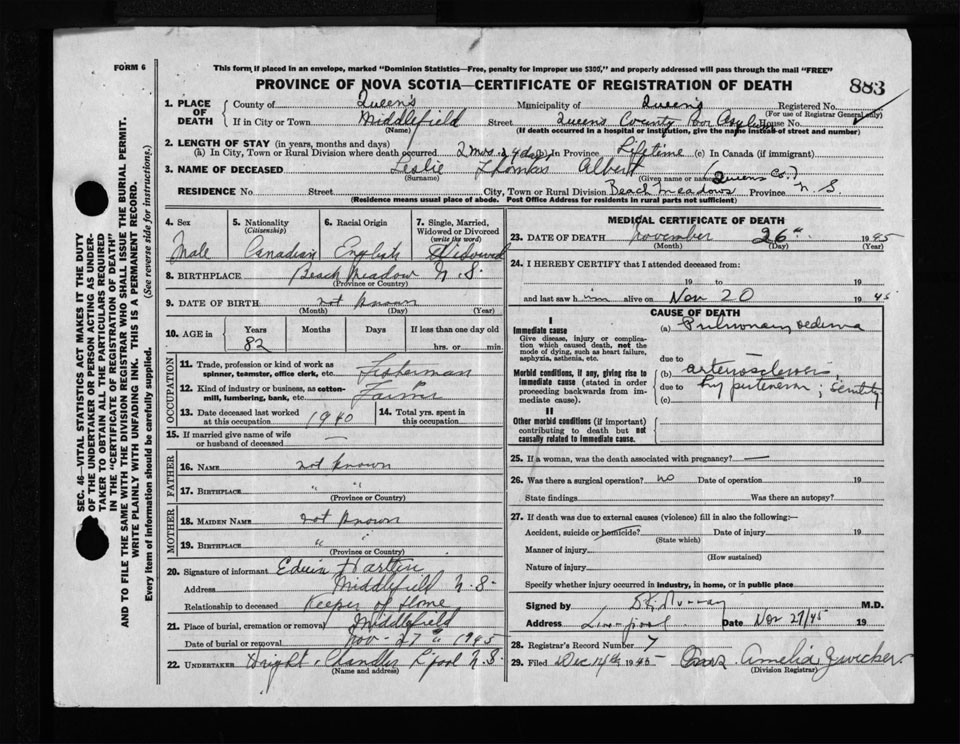 FORM 6
This form if placed in an envelope, marked "Dominion Statistics—Free, penalty for improper use $300," and properly addressed will pass through the mail "FREE"
PROVINCE OF NOVA SCOTIA—CERTIFICATE OF REGISTRATION OF DEATH
883
1. PLACE OF DEATH
County of Queen's Municipality of Queen's Registered No.
(For use of Registrar General only)
If in City or Town Middlefield Street Queens County Poor Asylum House No.
(Name) (If death occurred in a hospital or institution, give the name instead of street and number)
2. LENGTH OF STAY (in years, months and days)
(a) In City, Town or Rural Division where death occurred 2 mos. 24 days (b) In Province Lifetime (c) In Canada (if immigrant)
3. NAME OF DECEASED Leslie Thomas Albert (Queens Co.)
(Surname) (Given name or names)
RESIDENCE No. Street City, Town or Rural Division Beach Meadows Province N. S.
(Residence means usual place of abode. Post Office Address for residents in rural parts not sufficient)
4. Sex Male
5. Nationality (Citizenship) Canadian
6. Racial Origin English
7. Single, Married, Widowed or Divorced (write the word) Widowed
8. BIRTHPLACE Beach Meadow N. S.
(Province or Country)
9. DATE OF BIRTH not known
(Month) (Day) (Year)
10. AGE in Years 82 Months Days If less than one day old hrs. or min.
OCCUPATION
11. Trade, profession or kind of work as spinner, teamster, office clerk, etc. Fisherman
12. Kind of industry or business, as cotton-mill, lumbering, bank, etc. Farmer
13. Date deceased last worked at this occupation 1940
14. Total yrs. spent in this occupation
15. If married give name of wife or husband of deceased —
FATHER
16. NAME not known
17. BIRTHPLACE " "
(Province or Country)
MOTHER
18. MAIDEN NAME not known
19. BIRTHPLACE " "
(Province or Country)
20. Signature of informant Edwin
Address Middlefield N. S.
Relationship to deceased Keeper of Home
21. Place of burial, cremation or removal Middlefield
Date of burial or removal Nov - 27th 1945
22. UNDERTAKER Wright & Chandler L'pool N. S.
(Name and address)
MEDICAL CERTIFICATE OF DEATH
23. DATE OF DEATH November 26th 1945
(Month) (Day) (Year)
24. I HEREBY CERTIFY that I attended deceased from:
19 to 19
and last saw him alive on Nov 20 1945
CAUSE OF DEATH
I
Immediate cause
Give disease, injury or complication which caused death, not the mode of dying, such as heart failure, asphyxia, asthenia, etc.
(a) Pulmonary oedema
due to
Morbid conditions, if any, giving rise to immediate cause (stated in order proceeding backwards from immediate cause).
(b) arteriosclerosis;
due to hypertension; senility
(c)
II
Other morbid conditions (if important) contributing to death but not causally related to immediate cause.
25. If a woman, was the death associated with pregnancy? —
26. Was there a surgical operation? no Date of operation 19
State findings Was there an autopsy?
27. If death was due to external causes (violence) fill in also the following:—
Accident, suicide or homicide? Date of injury 19
(State which)
Manner of injury
(How sustained)
Nature of injury
Specify whether injury occurred in industry, in home, or in public place
Signed by Murray M.D.
Address Liverpool Date Nov 27/45 19
28. Registrar's Record Number 7
29. Filed Dec 14th 1945 Amelia Zwicker
(Division Registrar)
SEC. 46—VITAL STATISTICS ACT MAKES IT THE DUTY
OF THE UNDERTAKER OR PERSON ACTING AS UNDER-
TAKER TO OBTAIN ALL THE PARTICULARS REQUIRED
IN THE "CERTIFICATE OF REGISTRATION OF DEATH"
AND TO FILE THE SAME WITH THE DIVISION REGISTRAR WHO SHALL ISSUE THE BURIAL PERMIT.
WRITE PLAINLY WITH UNFADING INK. THIS IS A PERMANENT RECORD.
Every item of information should be carefully supplied. (See reverse side for instructions.)